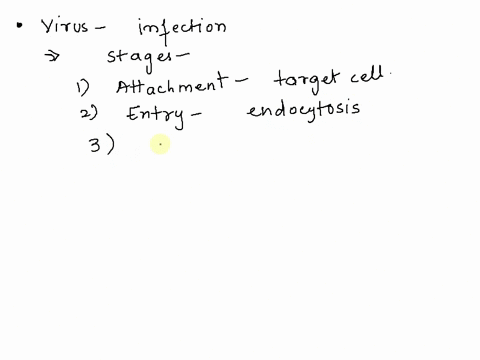 • Virus - infection
⇒ Stages -
1) Attachment - target cell.
2) Entry - endocytosis
3)